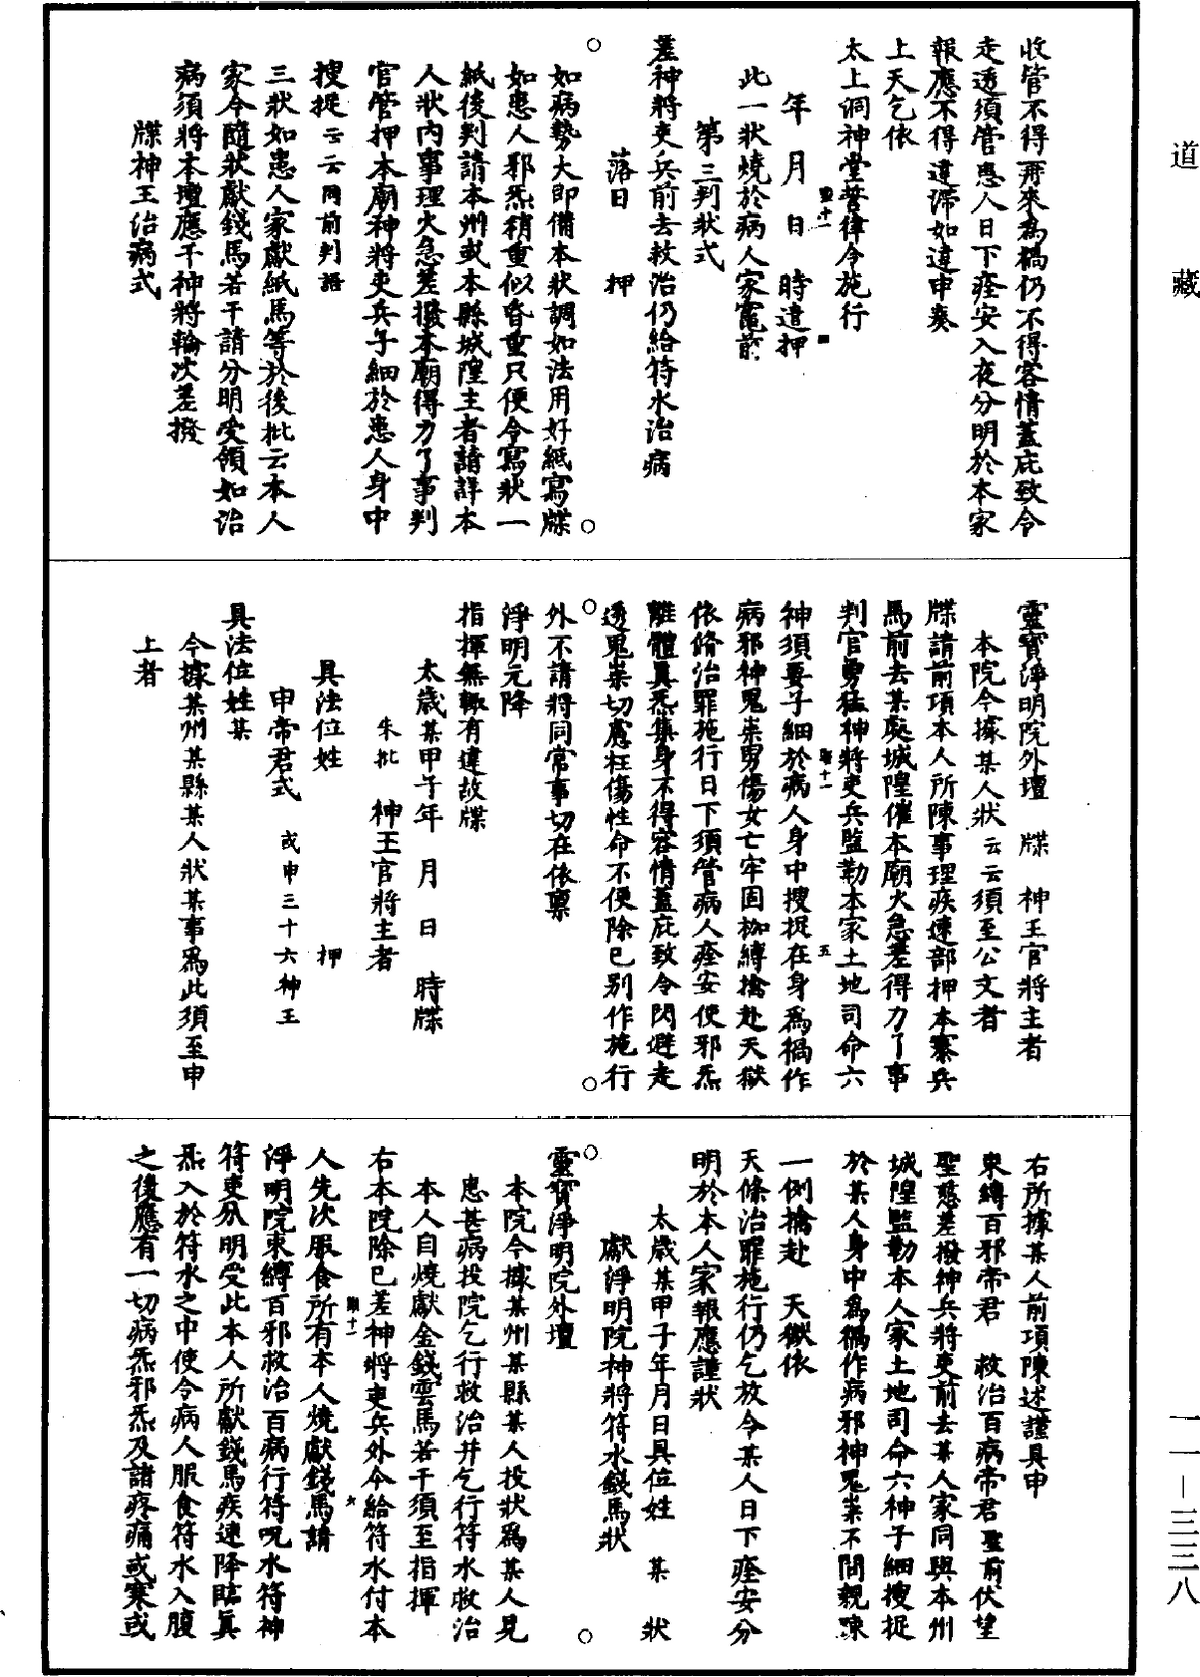 道藏
收管不得再來為禍仍不得容情蓋庇致令
走透須管患人日下痊安入夜分明於本家
報應不得違滯如違申奏
上天乞依
太上洞神堂誓律令施行
年 月 日 時遣押
此一狀燒於病人家竈前
第三判狀式
差神將吏兵前去救治仍給符水治病
落日 押
如病勢大即備本狀調如法用好紙寫牒
如患人邪炁稍重似昏重只便令寫狀一
紙後判請本州或本縣城隍主者請詳本
人狀內事理火急差撥本廟得力了事判
官管押本廟神將吏兵子細於患人身中
搜捉云云同前判語
三狀如患人家獻紙馬等於後批云本人
家今隨狀獻錢馬若干請分明受領如治
病須將本壇應干神將輪次差撥
牒神王治病式
靈寶淨明院外壇 牒 神王官將主者
本院今據某人狀云云須至公文者
牒請前項本人所陳事理疾速部押本寨兵
馬前去某處城隍催本廟火急差得力了事
判官勇猛神將吏兵監勒本家土地司命六
神須要子細於病人身中搜捉在身為禍作
病邪神鬼祟男傷女亡牢固枷縛擒赴天獄
依條治罪施行日下須管病人痊安使邪炁
離體真炁集身不得容情蓋庇致令閃避走
透鬼祟切慮枉傷性命不便除已別作施行
外不請將同常事切在依稟
淨明元降
指揮無輒有違故牒
太歲某甲子年 月 日 時牒
朱批 神王官將主者
具法位姓 押
申帝君式 或申三十六神王
具法位姓某
今據某州某縣某人狀某事為此須至申
上者
右所據某人前項陳述謹具申
束縛百邪帝君 救治百病帝君聖前伏望
聖慈差撥神兵將吏前去某人家同與本州
城隍監勒本人家土地司命六神子細搜捉
於某人身中為禍作病邪神鬼祟不間親疎
一例擒赴 天獄依
天條治罪施行仍乞放令某人日下痊安分
明於本人家報應謹狀
太歲某甲子年月日具位姓 某 狀
獻淨明院神將符水錢馬狀
靈寶淨明院外壇
本院今據某州某縣某人投狀為某人見
患甚病投院乞行救治并乞行符水救治
本人自燒獻金錢雲馬若干須至指揮
右本院除已差神將吏兵外今給符水付本
人先次服食所有本人燒獻錢馬請
淨明院束縛百邪救治百病行符呪水符神
符吏分明受此本人所獻錢馬疾速降臨真
炁入於符水之中使令病人服食符水入腹
之後應有一切病炁邪炁及諸疼痛或寒或
一一—三三八